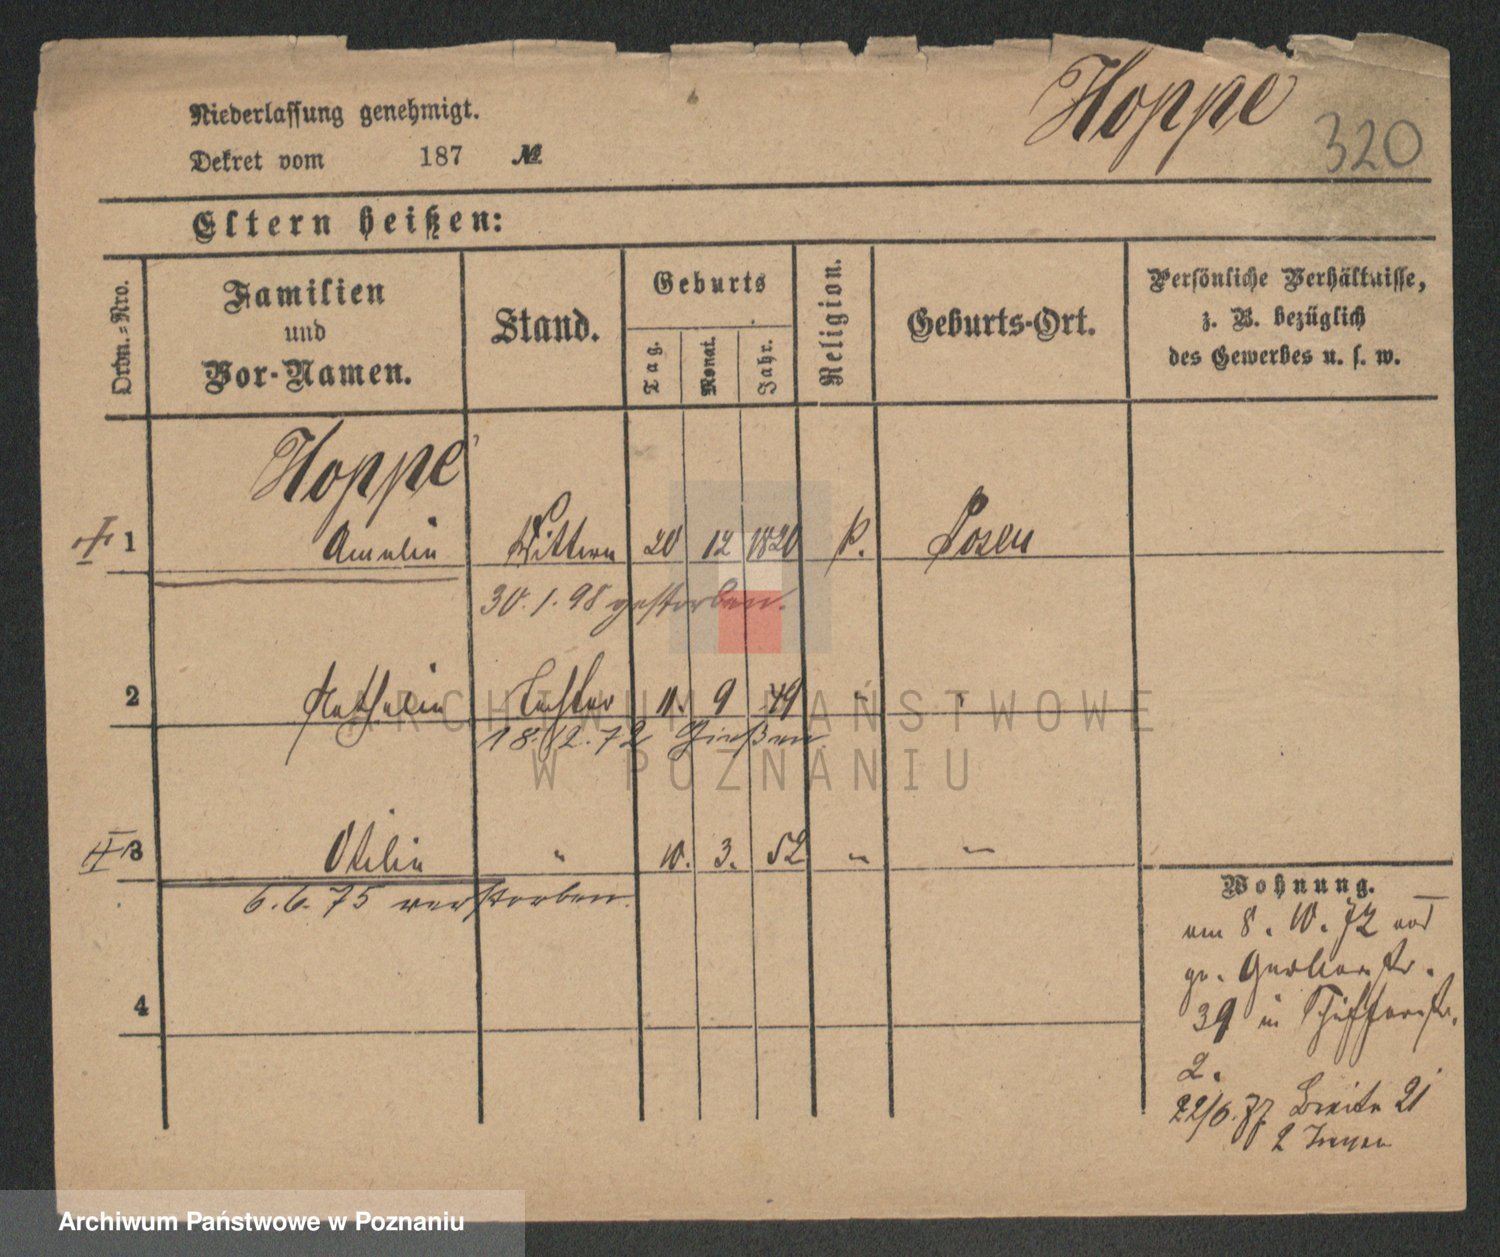 Niederlassung genehmigt.
Hoppe
320
Dekret vom 187 №
Eltern heißen:
Ordn.-Nro.
Familien
und
Vor-Namen.
Stand.
Geburts
Tag.
Monat.
Jahr.
Religion.
Geburts-Ort.
Persönliche Verhältnisse,
z. B. bezüglich
des Gewerbes u. s. w.
Hoppe
1 Amalie Wittwe 20 12 1820 k. Posen
30.1.98 gestorben.
2 Tochter 11. 9 49 "
18.12.72 Gießen
3 Otilie " 10. 3. 52 " "
6.6.75 verstorben.
4
Wohnung.
am 8. 10. 72 aus
gr. Gerberstr.
39 in Schifferstr.
2.
22/6.77 Breite 21
2 Treppen
ARCHIWUM PAŃSTWOWE
W POZNANIU
Archiwum Państwowe w Poznaniu